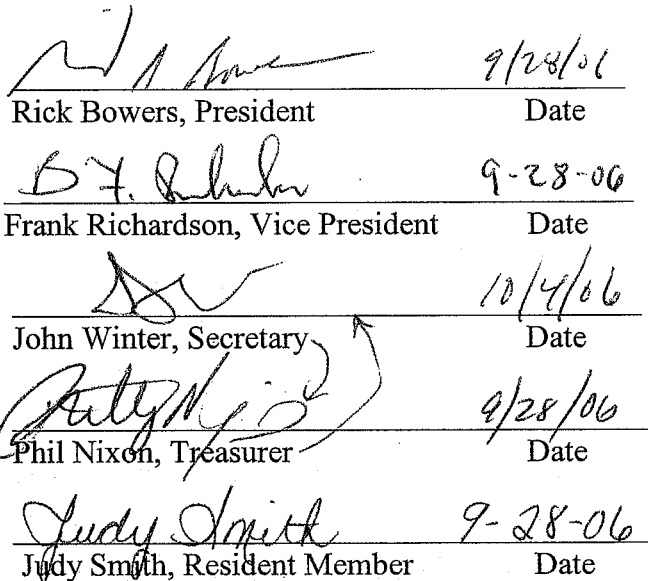 9/28/06
Rick Bowers, President Date
B F. 9-28-06
Frank Richardson, Vice President Date
10/4/06
John Winter, Secretary Date
9/28/06
Phil Nixon, Treasurer Date
Judy Smith 9-28-06
Judy Smith, Resident Member Date